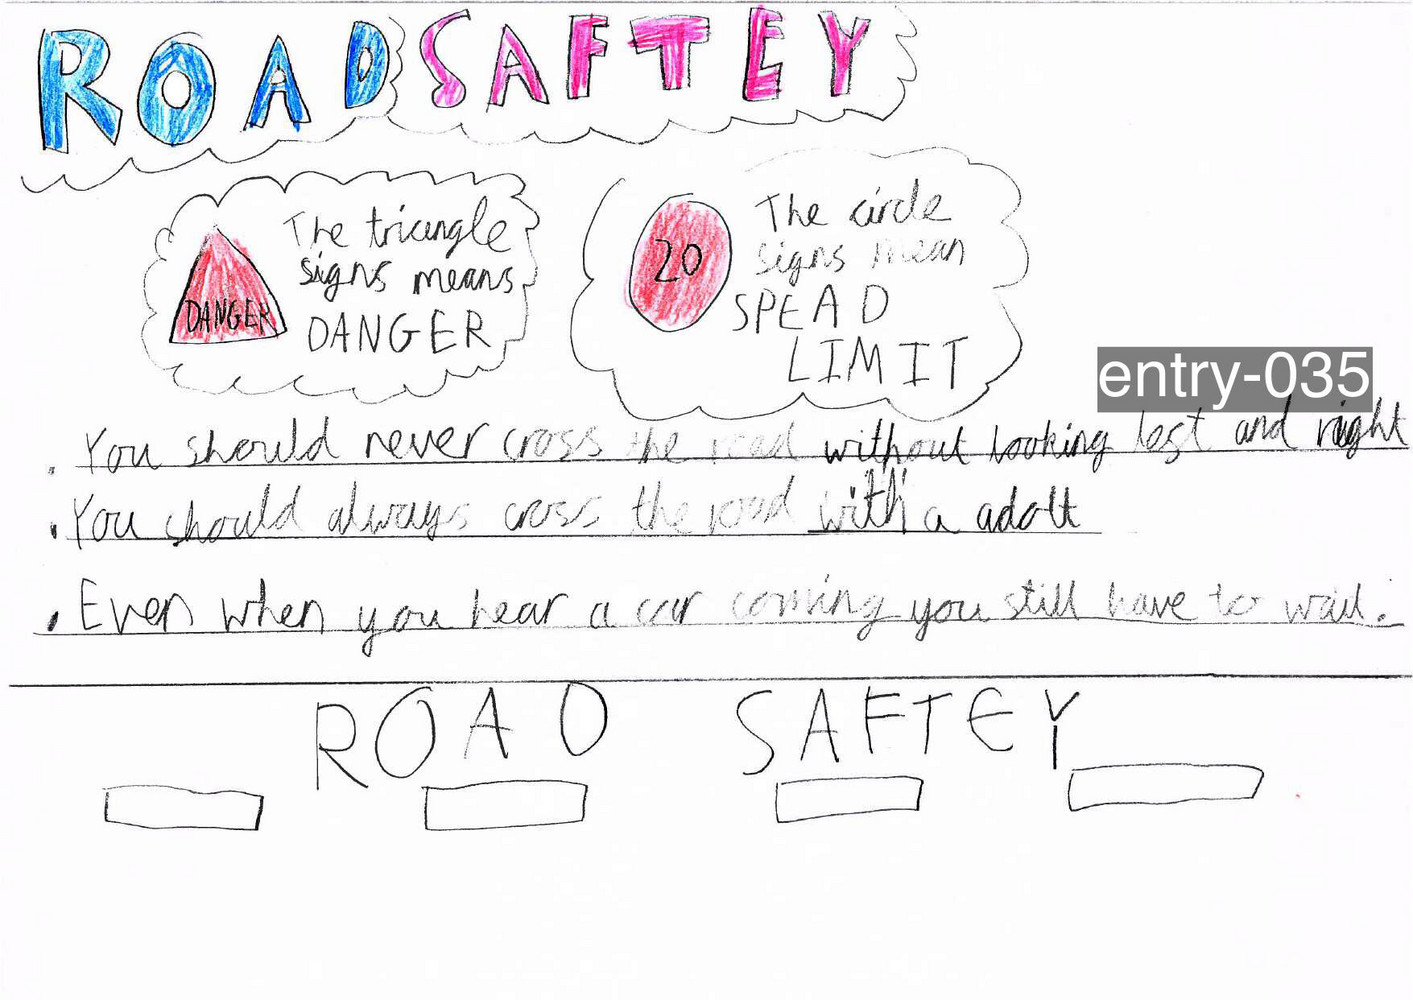 ROAD SAFTEY
The triangle
signs means
DANGER
DANGER
The circle
signs mean
SPEAD
LIMIT
20
entry-035
. You should never cross the road without looking lest and right
. You should always cross the road with a adolt
. Even when you hear a car coming you still have to wait.
ROAD SAFTEY